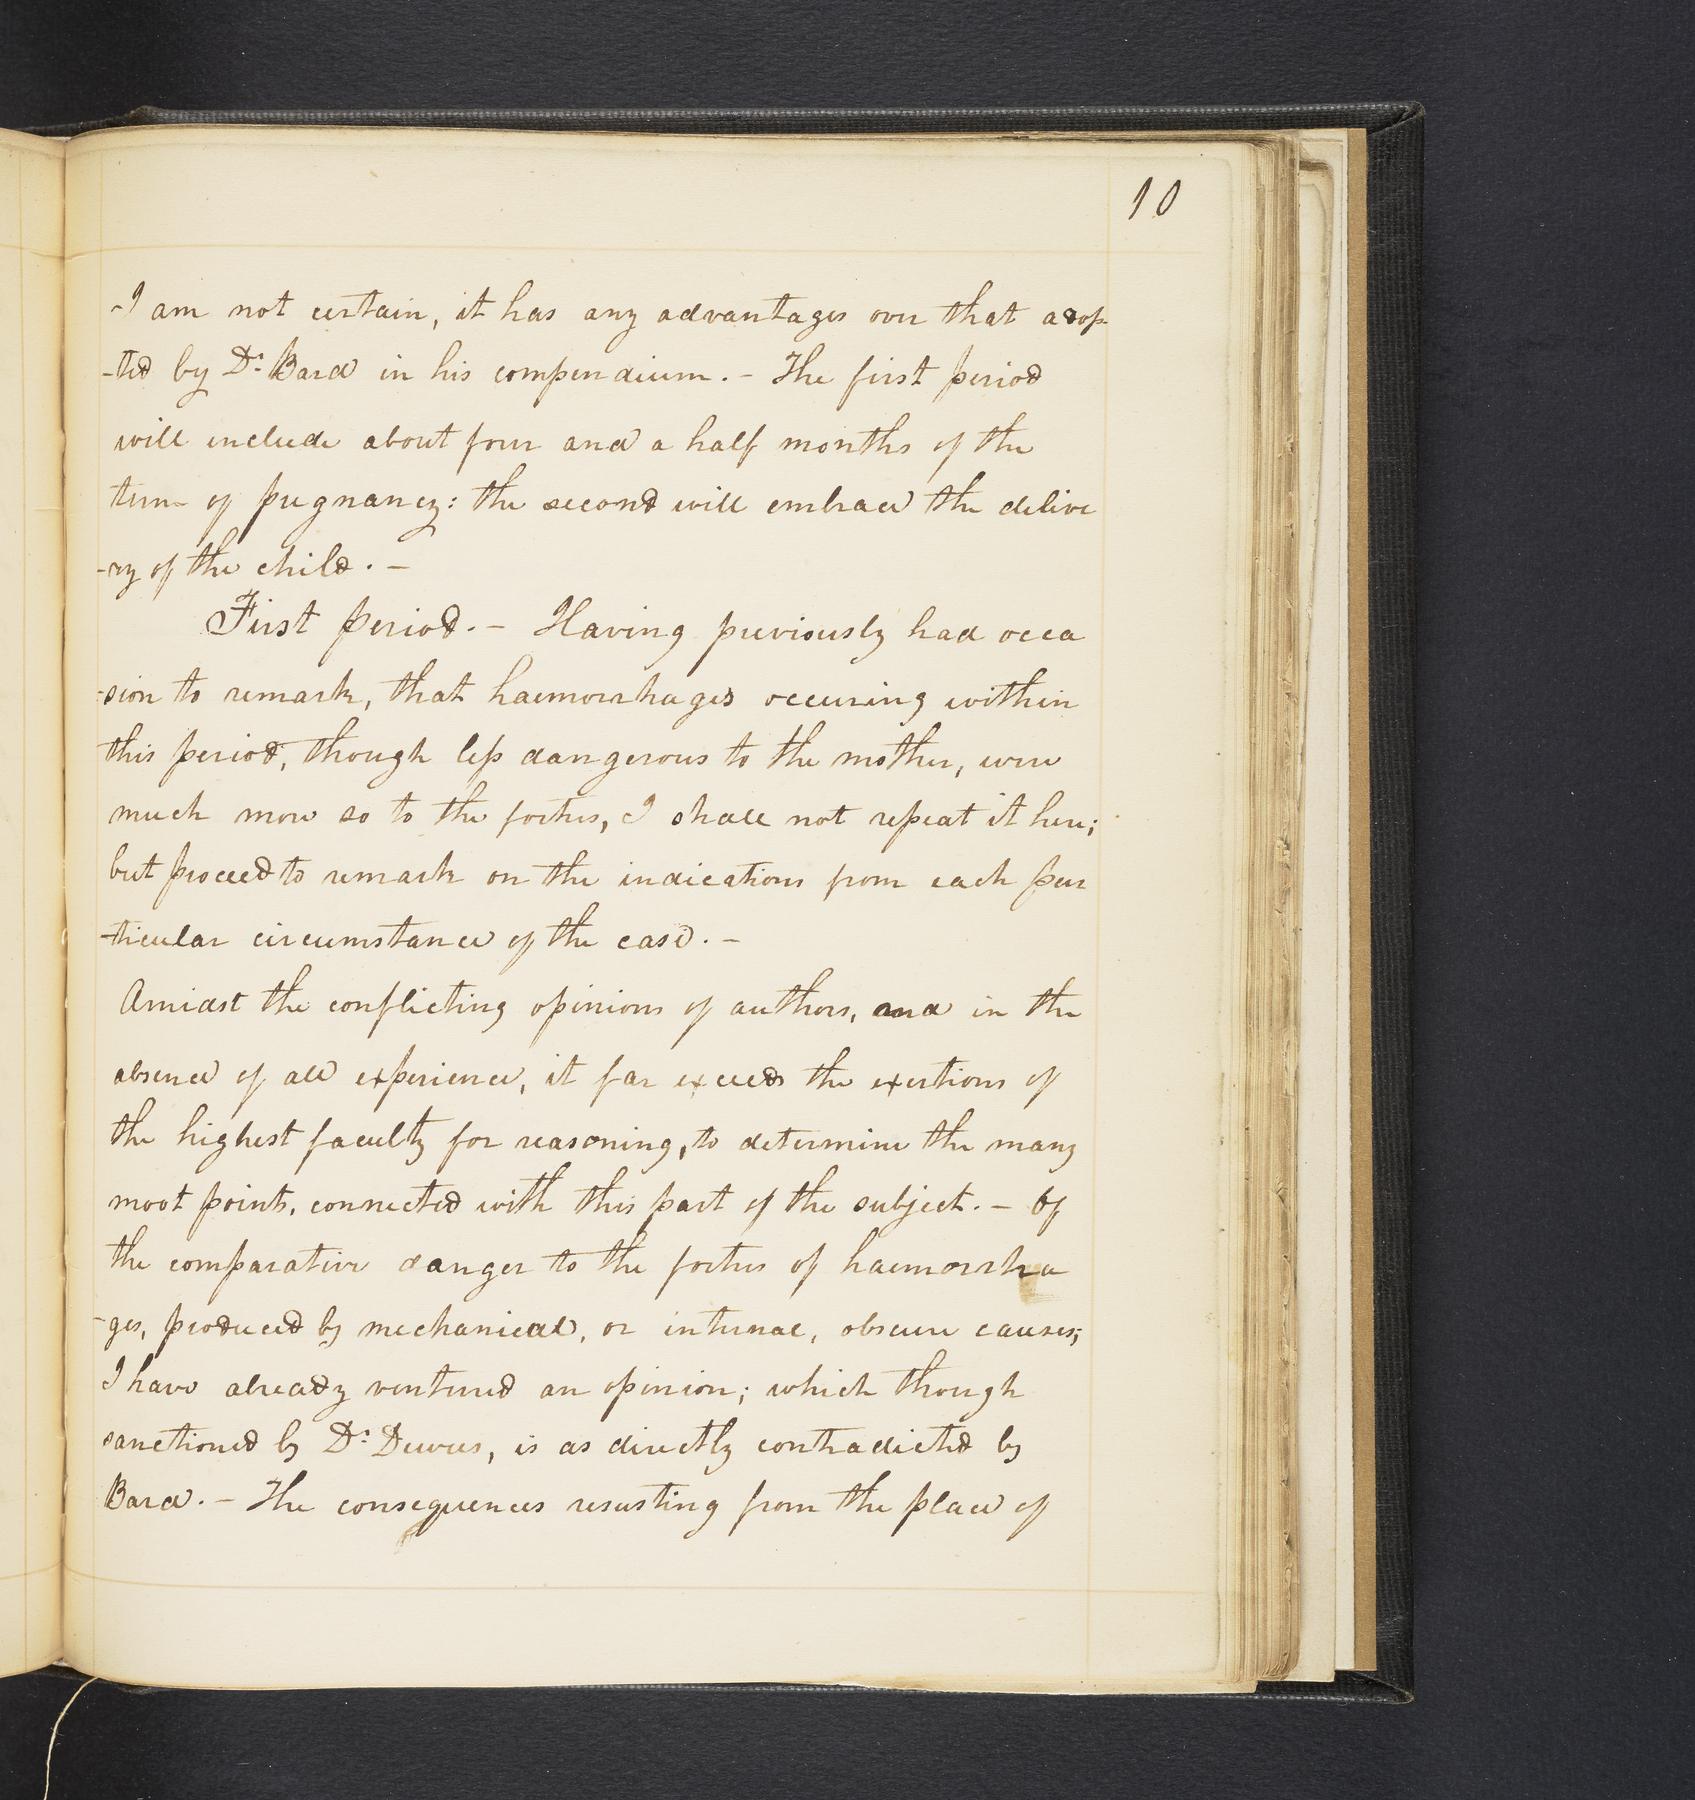 10
-I am not certain, it has any advantages over that adop-
-ted by Dr. Bard in his compendium. - The first period
will include about four and a half months of the
term of pregnancy: the second will embrace the delive
-ry of the child. -
First period. - Having previously had occa
-sion to remark, that haemorrhages occuring within
this period, though less dangerous to the mother, were
much more so to the foetus, I shall not repeat it here;
but proceed to remark on the indications from each par
-ticular circumstance of the case. -
Amidst the conflicting opinions of authors, and in the
absence of all experience, it far exceeds the exertions of
the highest faculty for reasoning, to determine the many
moot points, connected with this part of the subject. - Of
the comparative danger to the foetus of haemorrha
-ges, produced by mechanical, or internal, obscure causes;
I have already ventured an opinion; which though
sanctioned by Dr. Dewees, is as directly contradicted by
Bard. - The consequences resusting from the place of